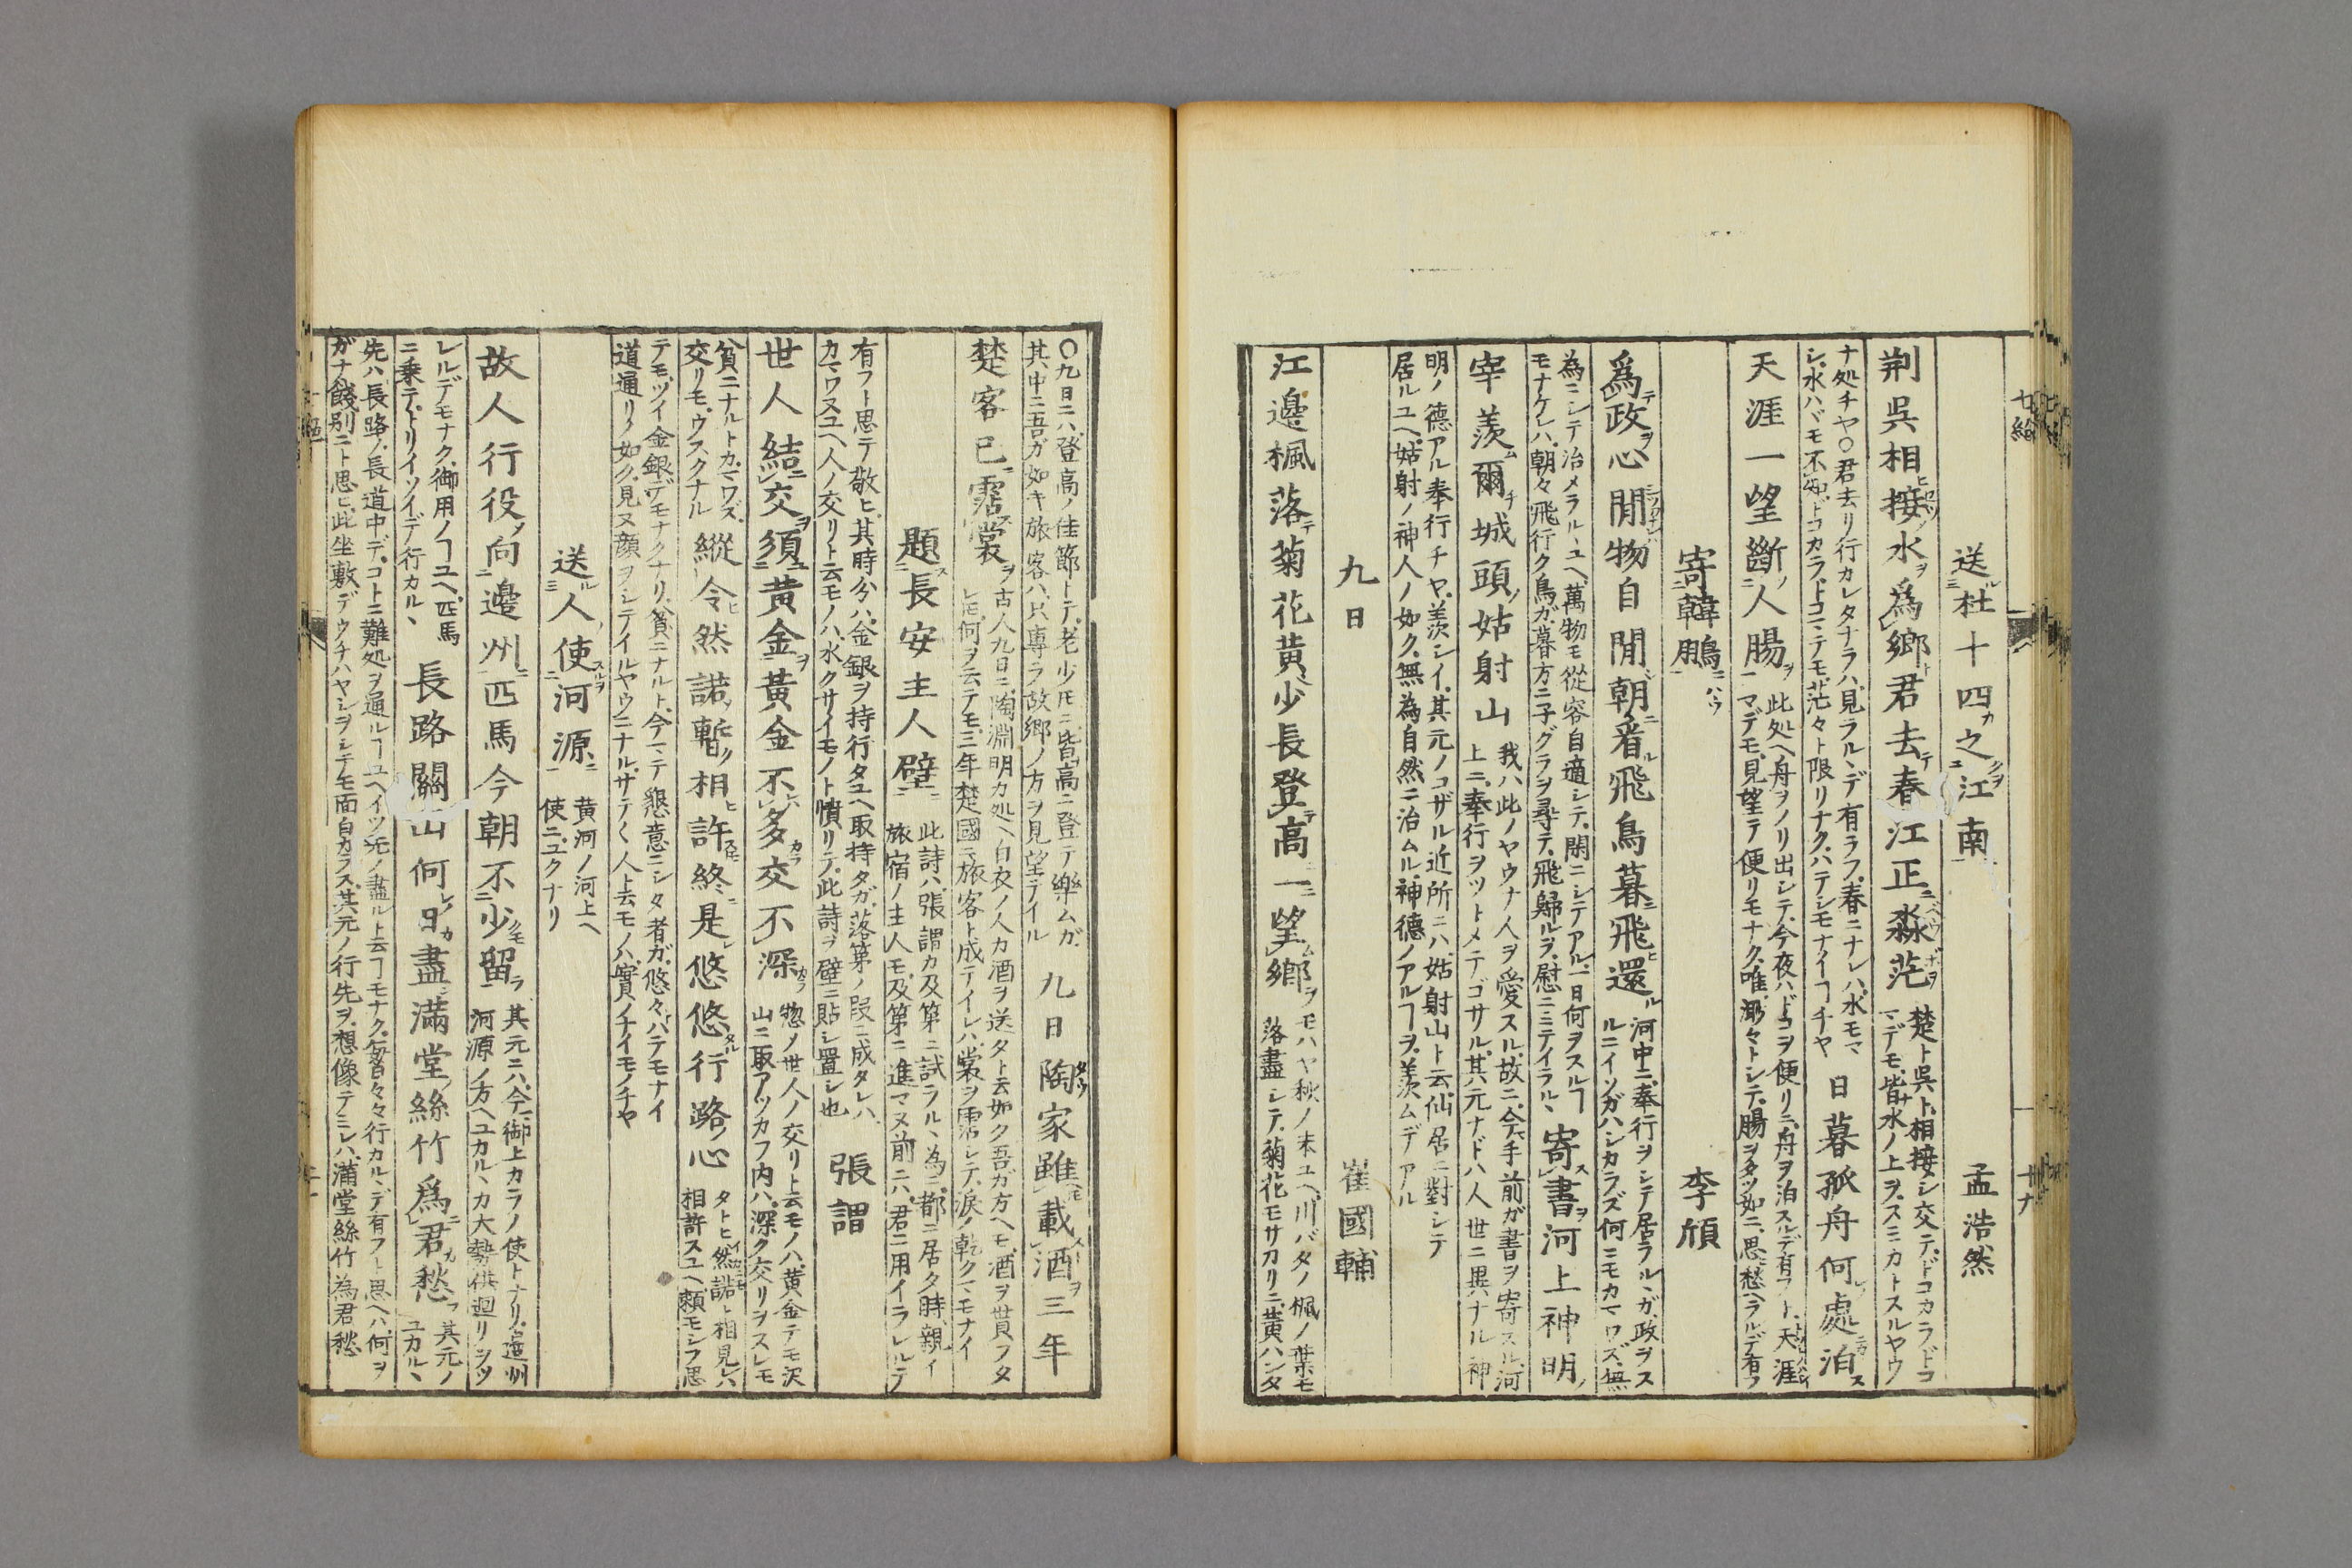 送杜十四之江南 孟浩然
荆吳相接水爲鄉君去春江正淼茫 楚ト吳ト相接シ交テドコカラドコ
マデモ皆水ノ上ヲスミカトスルヤウ
ナ処チヤ○君去リ行カレタナラハ見ラルヽデ有ラフ春ニナレハ水モマ
シ水ハヾモ不知ドコカラドコマテモ茫々ト限リナクハテシモナイヿチヤ 日暮孤舟何處泊
天涯一望斷人腸 此処ヘ舟ヲノリ出シテ今夜ハドコヲ便リニ舟ヲ泊スルデ有フト天涯
マデモ見望テ便リモナク唯渺々トシテ腸ヲタツ如ニ思愁ヘラルデ有フ
寄韓鵬 李頎
爲政心閒物自閒朝看飛鳥暮飛還 河中ニ奉行ヲシテ居ラルヽガ政ヲス
ルニイソガハシカラズ何ニモカマワズ無
為ニシテ治メラルヽユヘ萬物モ從容自適シテ閑ニシテアル一日何ヲスルヿ
モナケレハ朝々飛行ク鳥ガ暮方ニ子グラヲ尋テ飛歸ルヲ慰ニミテイラルヽ 寄書河上神明
宰羨爾城頭姑射山 我ハ此ノヤウナ人ヲ愛スル故ニ今手前ガ書ヲ寄スル河
上ニ奉行ヲツトメテゴサル其元ナドハ人世ニ異ナル神
明ノ德アル奉行チヤ羨シイ其元ノコザル近所ニハ姑射山ト云仙居ニ對シテ
居ルユヘ姑射ノ神人ノ如ク無為自然ニ治ムル神德ノアルヿヲ羨ムデアル
九日 崔國輔
江邊楓落菊花黄少長登高一望鄉 モハヤ秋ノ末ユヘ川バタノ楓ノ葉モ
落盡シテ菊花モサカリニ黄ハンタ
○九日ニハ登高ノ佳節トテ老少𪜈ニ皆高ニ登テ樂ムガ
其中ニ吾ガ如キ旅客ハ只專ラ故鄉ノ方ヲ見望テイル 九日陶家雖載酒三年
楚客已霑裳 古人九日ニ陶淵明カ処ヘ白衣ノ人カ酒ヲ送タト云如ク吾ガ方ヘモ酒ヲ貰フタ
レ𪜈何ヲ云テモ三年楚國ニ旅客ト成テイレハ裳ヲ霑シテ涙ノ乾クマモナイ
題長安主人壁 此詩ハ張謂カ及第ニ試ラルヽ為ニ都ニ居タ時親イ
旅宿ノ主人モ及第ニ進マヌ前ニハ君ニ用イラレルテ
有フト思テ敬ヒ其時分ハ金銀ヲ持行タユヘ取持タガ落第ノ段ニ成タレハ
カマワヌユヘ人ノ交リト云モノハ水クサイモノト憤リテ此詩ヲ壁ニ貼シ置シ也 張謂
世人結交須黄金黄金不多交不深 惣ノ世人ノ交リト云モノハ黄金テモ沢
山ニ取アツカフ内ハ深ク交リヲスレモ
貧ニナルトカマワズ
交リモウスクナル 縱令然諾暫相許終是悠悠行路心 タトヒ然諾ト相見レハ
相許スユヘ頼モシフ思
テモツイ金銀デモナクナリ貧ニナルト今マテ懇意ニシタ者ガ悠々ハテモナイ
道通リノ如ク見ヌ顔ヲシテイルヤウニナルサテ〱人ト云モノハ實ノナイモノチヤ
送人使河源 黄河ノ河上ヘ
使ニユクナリ
故人行役向邊州匹馬今朝不少留 其元ニハ今御上カラノ使トナリ邊州
河源ノ方ヘユカルヽカ大勢供廻リシツ
レルデモナク御用ノヿユヘ匹馬
ニ乗テトリイソイデ行カルヽ 長路關山何日盡滿堂絲竹爲君愁 其元ノ
ユカルヽ
先ハ長路ノ長道中デコトニ難処ヲ通ルヿユヘイツ先ノ盡ルト云ヿモナク行カルヽデ有フト思ヘハ何ヲ
ガナ餞別ニト思ヒ此坐敷デウチハヤシヲシテモ面白カラス其元ノ行先ヲ想像テミレハ滿堂絲竹為君愁